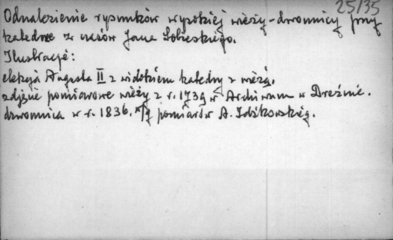 25/35
Odnalezienie rysunków wysokiej wieży-dzwonnicy przy
katedrze za czasów Jana Sobieskiego.
Ilustracje:
elekcja Augusta II z widokiem katedry z wieżą.
zdjęcie pomiarowe wieży z r. 1739 w Archiwum w Dreźnie.
dzwonnica w r. 1836. w/g pomiarów A. Idźkowskiego.